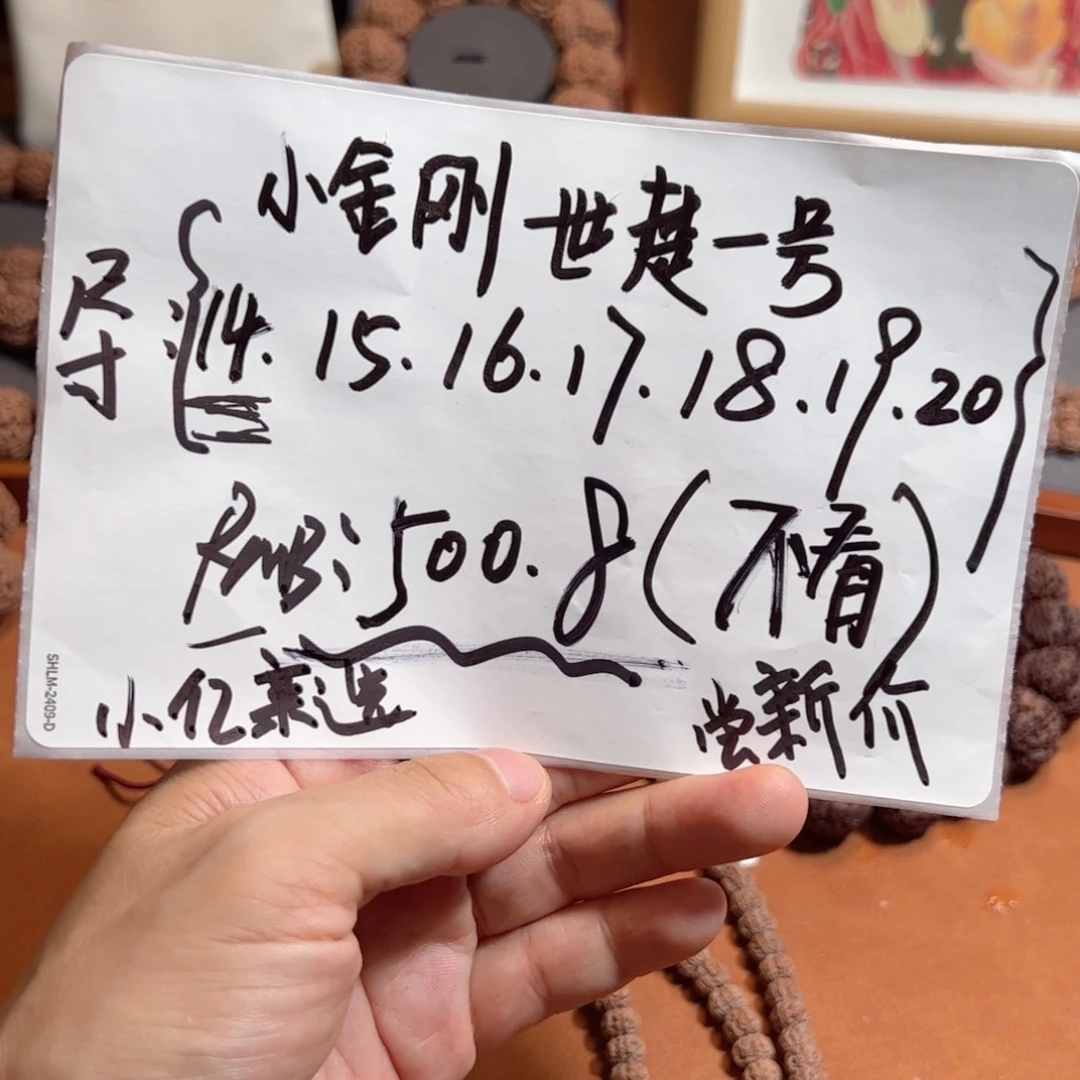 小金刚世楚一号
尺寸
14. 15. 16. 17. 18. 19. 20
RMB: 500.8(不肴)
小亿莱选
尝新价
SHLM-2409-D